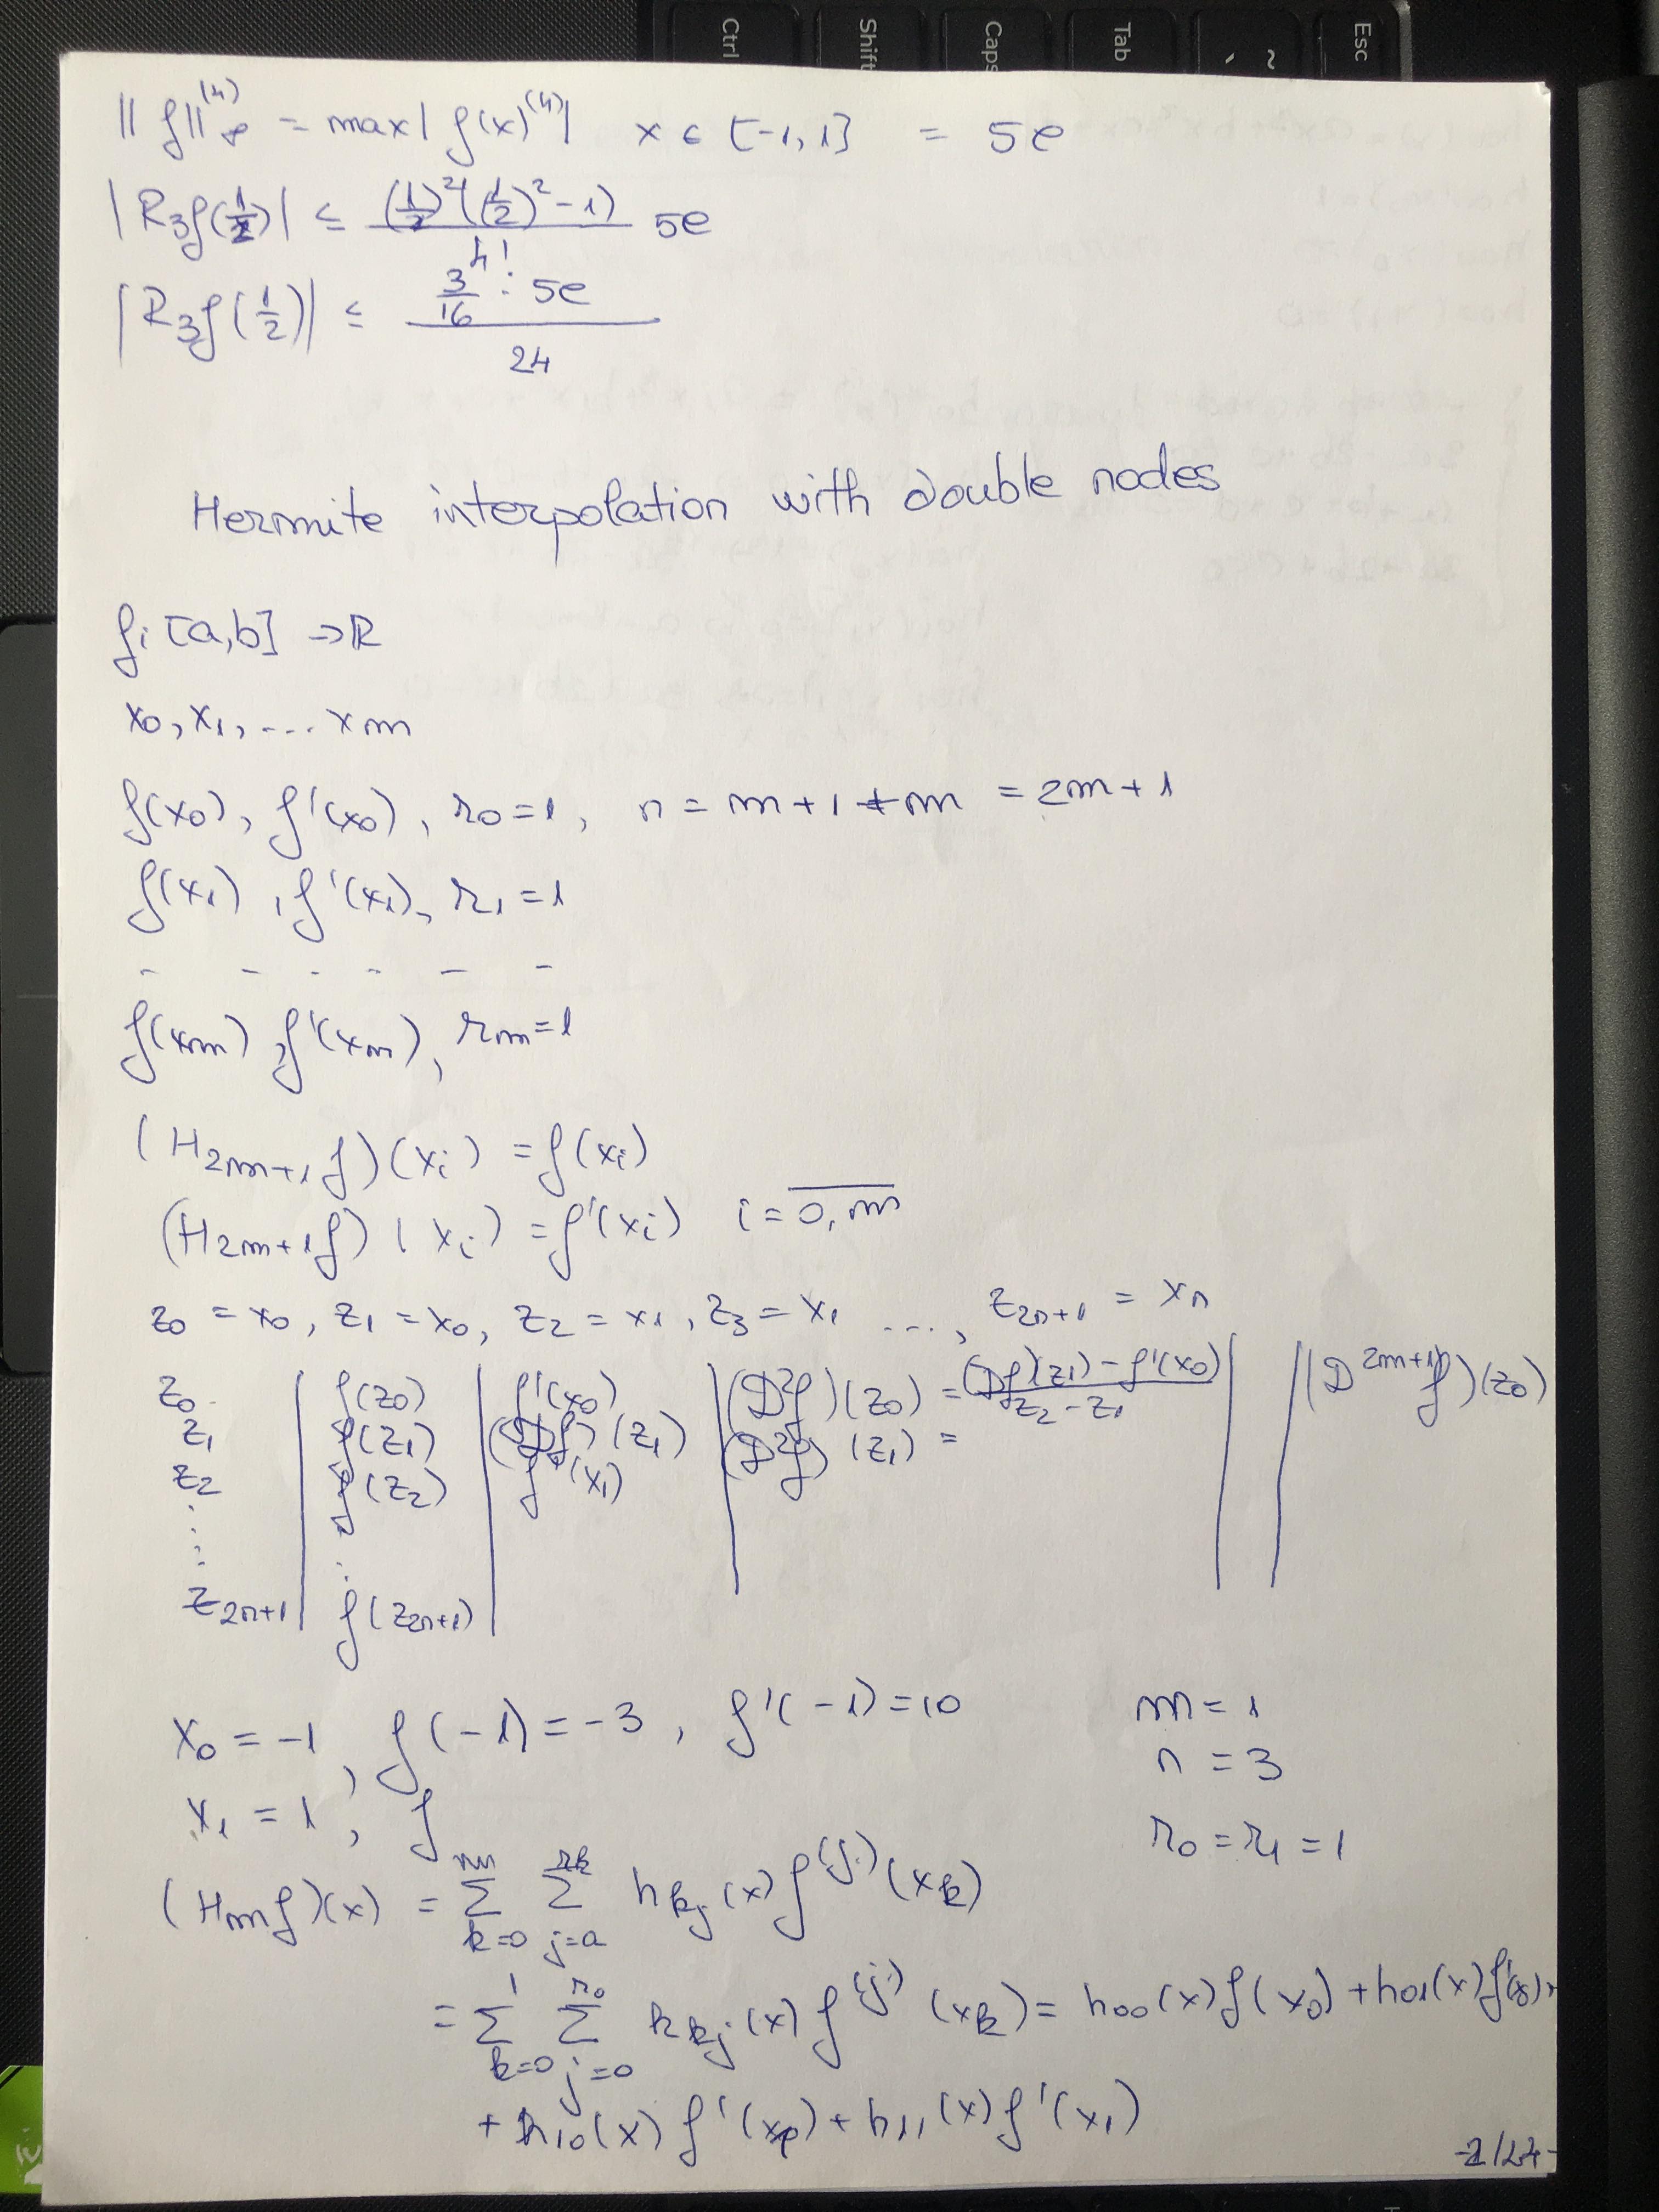 Ctrl Shift Caps Tab ` ~ Esc
||f||∞^(4) = max|f(x)^(4)| x ∈ [-1,1] = 5e
|R₃f(1/2)| ≤ (1/2)²((1/2)²-1) / 4! 5e
|R₃f(1/2)| ≤ 3/16 · 5e / 24
Hermite interpolation with double nodes
f: [a,b] → R
x₀, x₁, ... xm
f(x₀), f'(x₀), r₀=1, n = m+1+m = 2m+1
f(x₁), f'(x₁), r₁=1
- - - - - -
f(xm), f'(xm), rm=1
(H₂m+₁f)(xi) = f(xi)
(H₂m+₁f)(xi) = f'(xi) i = 0,m
z₀ = x₀, z₁ = x₀, z₂ = x₁, z₃ = x₁ ..., z₂n+₁ = xn
z₀ | f(z₀) | f'(x₀) | (D²f)(z₀) = (Df)(z₁) - f'(x₀) / z₂ - z₁ | | (D^2m+1 f)(z₀)
z₁ | f(z₁) | (Df)(z₁) | (D²f)(z₁) =
z₂ | f(z₂) | f'(x₁)
⋮ ⋮
z₂n+₁ | f(z₂n+₁)
x₀ = -1, f(-1) = -3, f'(-1) = 10 m = 1
n = 3
x₁ = 1, f
r₀ = r₁ = 1
(Hmf)(x) = Σ k=0 m Σ j=0 rk hkj(x) f^(j)(xk)
= Σ k=0 1 Σ j=0 r₀ hkj(x) f^(j)(xk) = h₀₀(x)f(x₀) + h₀₁(x)f'(x₀)+
+ h₁₀(x) f'(x₁) + h₁₁(x) f'(x₁)